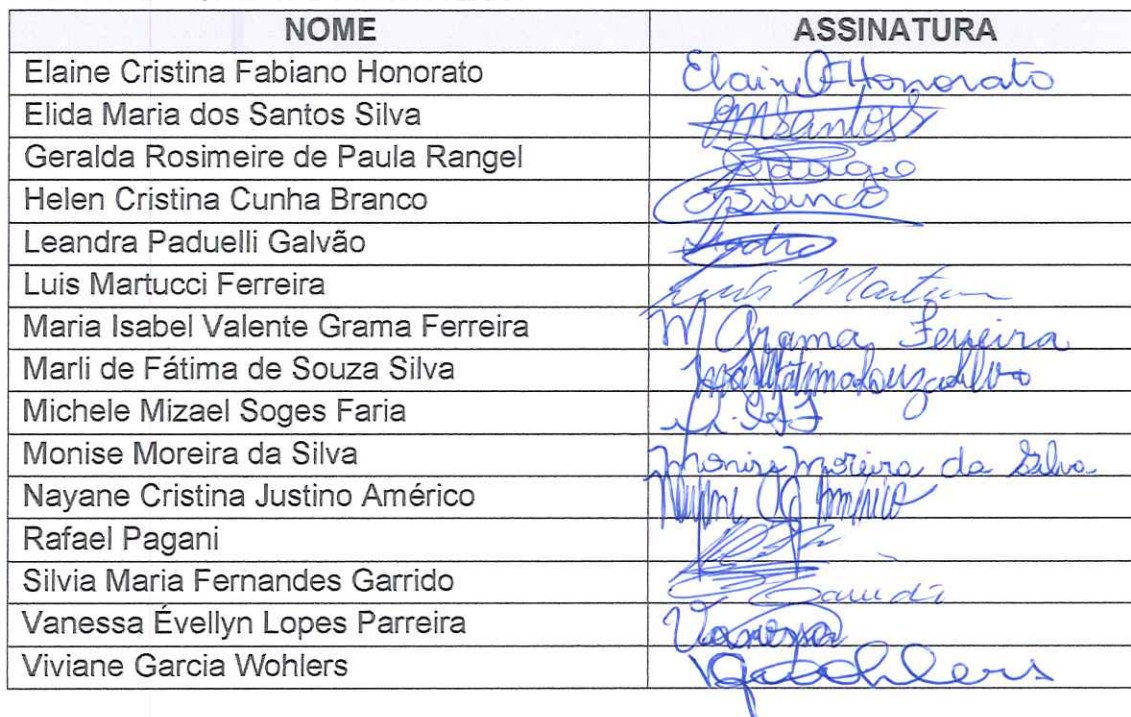 NOME ASSINATURA
Elaine Cristina Fabiano Honorato Elaine Honorato
Elida Maria dos Santos Silva EMSantosS
Geralda Rosimeire de Paula Rangel
Helen Cristina Cunha Branco Branco
Leandra Paduelli Galvão
Luis Martucci Ferreira Luis
Maria Isabel Valente Grama Ferreira M Grama Ferreira
Marli de Fátima de Souza Silva
Michele Mizael Soges Faria
Monise Moreira da Silva Monise Moreira da Silva
Nayane Cristina Justino Américo
Rafael Pagani
Silvia Maria Fernandes Garrido
Vanessa Évellyn Lopes Parreira Vanessa
Viviane Garcia Wohlers VGWohlers